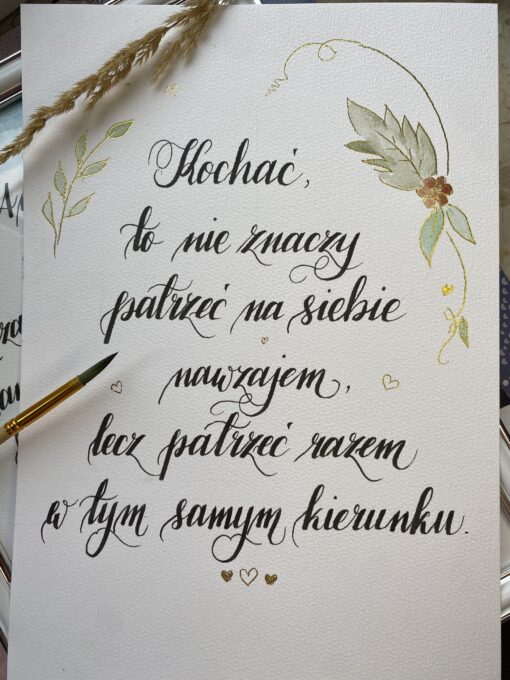 Kochać,
to nie znaczy
patrzeć na siebie
nawzajem,
lecz patrzeć razem
w tym samym kierunku.